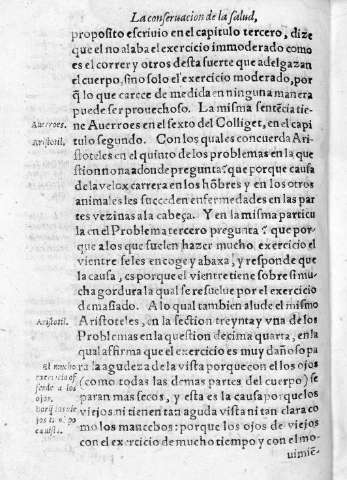 La conseruacion de la salud,
proposito escriuio en el capitulo tercero, dize
que el no alaba el exercicio immoderado como
es el correr y otros desta suerte que adelgazan
el cuerpo, sino solo el exercicio moderado, por
q̃ lo que carece de medida en ninguna manera
puede ser prouechoso. La misma sentẽcia tie-
Auerroes.
ne Auerroes en el sexto del Colliget, en el capi
Aristotil.
tulo segundo. Con los quales concuerda Ari-
stoteles en el quinto de los problemas en la que
stion nona adonde pregunta? que porque causa
de la velox carrera en los hõbres y en los otros
animales les succeden enfermedades en las par
tes vezinas a la cabeça. Y en la misma particu
la en el Problema tercero pregunta? que por-
que a los que suelen hazer mucho exercicio el
vientre se les encoge y abaxa, y responde que
la causa, es porque el vientre tiene sobre si mu-
cha gordura la qual se resuelue por el exercicio
demasiado. A lo qual tambien alude el mismo
Aristotil.
Aristoteles, en la section treynta y vna de los
Problemas en la question decima quarta, en la
qual affirma que el exercicio es muy dañoso pa
El mucho
ra la agudeza de la vista porque con el los ojos
exercicio of
(como todas las demas partes del cuerpo) se
fende a los
paran mas secos, y esta es la causa porque los
ojos.
viejos ni tienen tan aguda vista ni tan clara co
mo los mancebos: porque los ojos de viejos
con el exercicio de mucho tiempo y con el mo-
uimiẽ-